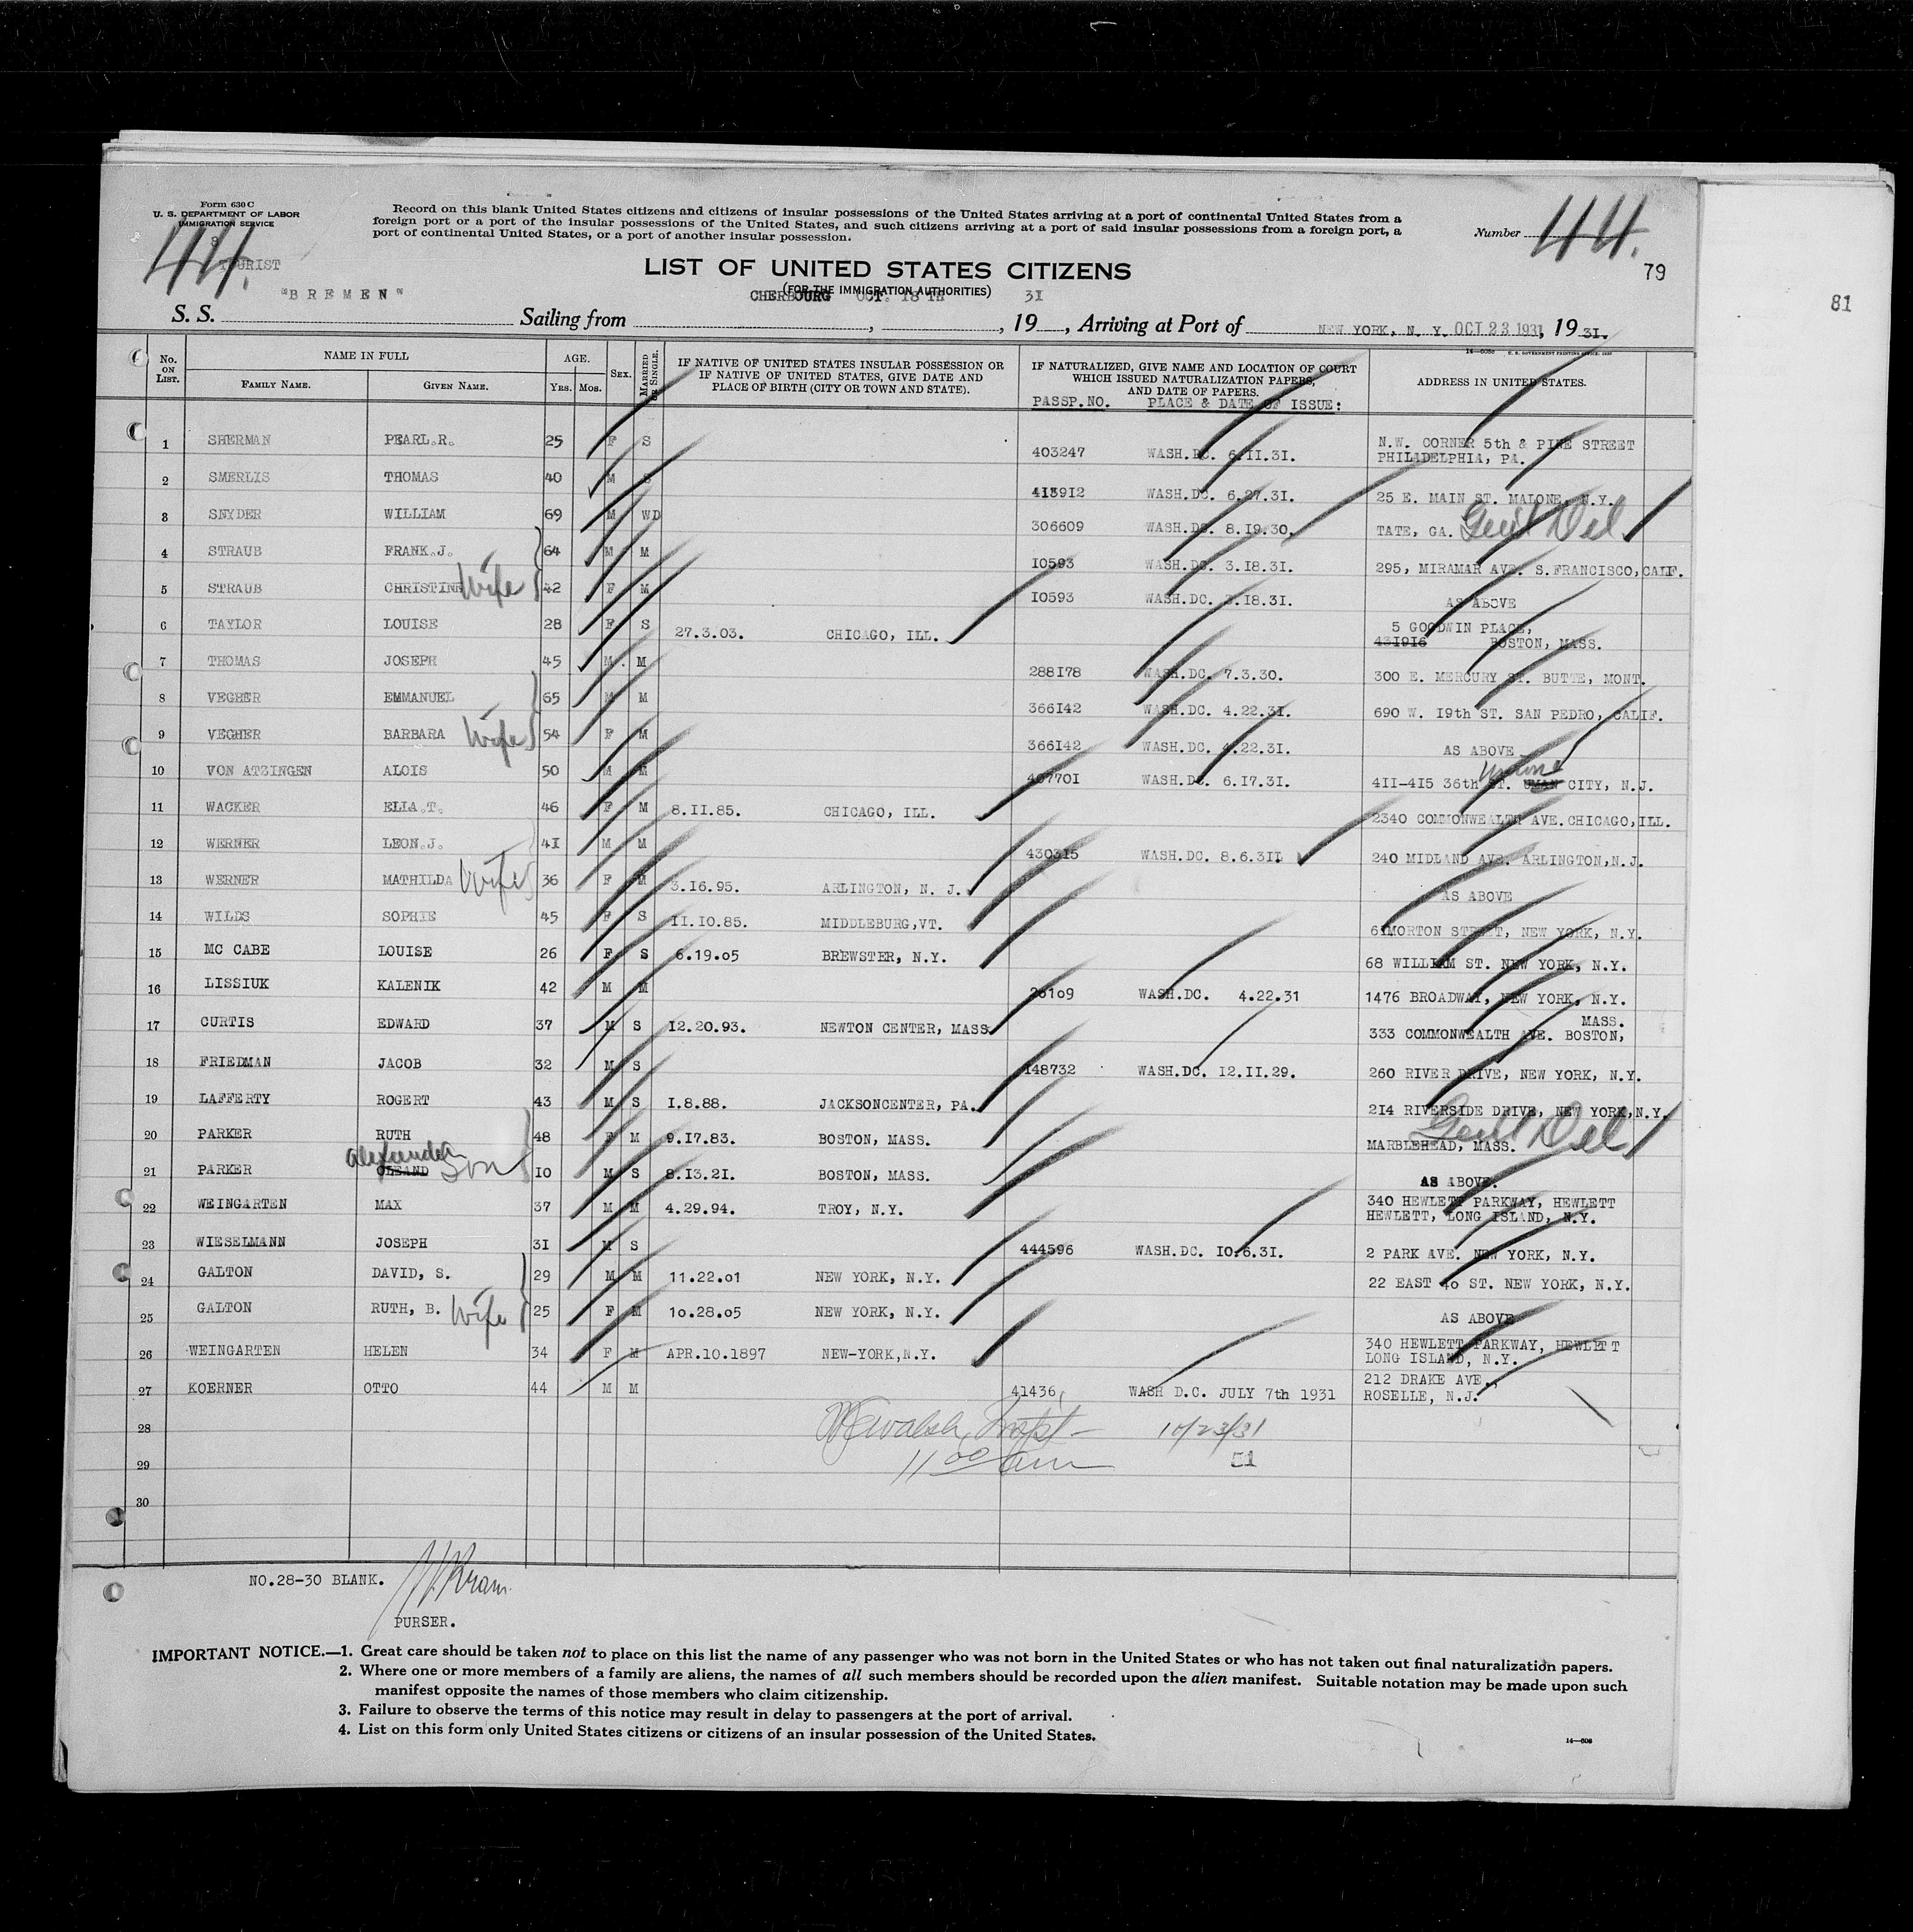 Form 630 C
U. S. DEPARTMENT OF LABOR
IMMIGRATION SERVICE
8
44.
TOURIST
Record on this blank United States citizens and citizens of insular possessions of the United States arriving at a port of continental United States from a
foreign port or a port of the insular possessions of the United States, and such citizens arriving at a port of said insular possessions from a foreign port, a
port of continental United States, or a port of another insular possession.
Number 44.
79
81
LIST OF UNITED STATES CITIZENS
(FOR THE IMMIGRATION AUTHORITIES)
S. S. "BREMEN" Sailing from CHERBOURG OCT. 18 TH, 19 3I, Arriving at Port of NEW YORK, N. Y. OCT 23 1931, 19 3I.
14—608c U. S. GOVERNMENT PRINTING OFFICE: 1930
No. ON LIST. NAME IN FULL FAMILY NAME. GIVEN NAME. AGE. YRS. MOS. SEX. MARRIED OR SINGLE. IF NATIVE OF UNITED STATES INSULAR POSSESSION OR IF NATIVE OF UNITED STATES, GIVE DATE AND PLACE OF BIRTH (CITY OR TOWN AND STATE). IF NATURALIZED, GIVE NAME AND LOCATION OF COURT WHICH ISSUED NATURALIZATION PAPERS, AND DATE OF PAPERS. ADDRESS IN UNITED STATES.
PASSP.NO. PLACE & DATE OF ISSUE:
1 SHERMAN PEARL.R. 25 F S 403247 WASH.DC. 6.II.3I. N.W. CORNER 5th & PINE STREET PHILADELPHIA, PA.
2 SMERLIS THOMAS 40 M S 413912 WASH.DC. 6.27.3I. 25 E. MAIN ST. MALONE, N.Y.
3 SNYDER WILLIAM 69 M WD 306609 WASH.DC. 8.I9.30. TATE, GA. Genl Del
4 STRAUB FRANK.J. 64 M M I0593 WASH.DC. 3.I8.3I. 295, MIRAMAR AVE. S.FRANCISCO, CALIF.
5 STRAUB CHRISTINE Wife 42 F M I0593 WASH.DC. 3.I8.3I. AS ABOVE
6 TAYLOR LOUISE 28 F S 27.3.03. CHICAGO, ILL. 5 GOODWIN PLACE, 43I9I6 BOSTON, MASS.
7 THOMAS JOSEPH 45 M. M 288I78 WASH.DC. 7.3.30. 300 E. MERCURY ST. BUTTE, MONT.
8 VEGHER EMMANUEL 65 M M 366I42 WASH.DC. 4.22.3I. 690 W. I9th ST. SAN PEDRO, CALIF.
9 VEGHER BARBARA Wife 54 F M 366I42 WASH.DC. 4.22.3I. AS ABOVE
10 VON ATZINGEN ALOIS 50 M M 40770I WASH.DC. 6.I7.3I. 4II-4I5 36th ST. UMAN Union CITY, N.J.
11 WACKER ELLA.T. 46 F M 8.II.85. CHICAGO, ILL. 2340 COMMONWEALTH AVE.CHICAGO, ILL.
12 WERNER LEON.J. 4I M M 4303I5 WASH.DC. 8.6.3II 240 MIDLAND AVE. ARLINGTON,N.J.
13 WERNER MATHILDA Wife 36 F M 3.I6.95. ARLINGTON, N. J. AS ABOVE
14 WILDS SOPHIE 45 F S II.I0.85. MIDDLEBURG,VT. 6 MORTON STREET, NEW YORK, N.Y.
15 MC CABE LOUISE 26 F S 6.19.o5 BREWSTER, N.Y. 68 WILLIAM ST. NEW YORK, N.Y.
16 LISSIUK KALENIK 42 M M 26109 WASH.DC. 4.22.31 1476 BROADWAY, NEW YORK, N.Y.
17 CURTIS EDWARD 37 M S I2.20.93. NEWTON CENTER, MASS. 333 COMMONWEALTH AVE. BOSTON, MASS.
18 FRIEDMAN JACOB 32 M S 148732 WASH.DC. I2.II.29. 260 RIVER DRIVE, NEW YORK, N.Y.
19 LAFFERTY ROGERT 43 M S I.8.88. JACKSONCENTER, PA. 2I4 RIVERSIDE DRIVE, NEW YORK,N.Y.
20 PARKER RUTH 48 F M 9.I7.83. BOSTON, MASS. MARBLEHEAD, MASS. Genl Del
21 PARKER OLEAND Alexander Son I0 M S 8.I3.2I. BOSTON, MASS. AS ABOVE.
22 WEINGARTEN MAX 37 M M 4.29.94. TROY, N.Y. 340 HEWLETT PARKWAY, HEWLETT HEWLETT, LONG ISLAND, N.Y.
23 WIESELMANN JOSEPH 3I M S 444596 WASH.DC. I0.6.3I. 2 PARK AVE. NEW YORK, N.Y.
24 GALTON DAVID, S. 29 M M 11.22.o1 NEW YORK, N.Y. 22 EAST 4o ST. NEW YORK, N.Y.
25 GALTON RUTH, B. Wife 25 F M 1o.28.o5 NEW YORK, N.Y. AS ABOVE
26 WEINGARTEN HELEN 34 F M APR.10.1897 NEW-YORK,N.Y. 340 HEWLETT PARKWAY, HEWLETT LONG ISLAND, N.Y.
27 KOERNER OTTO 44 M M 41436 WASH D.C. JULY 7th 1931 212 DRAKE AVE., ROSELLE, N.J.
28 Walsh, Inspt — 10/23/31
29 11 00 am 51
30
NO.28-30 BLANK.
PURSER.
IMPORTANT NOTICE.—1. Great care should be taken not to place on this list the name of any passenger who was not born in the United States or who has not taken out final naturalization papers.
2. Where one or more members of a family are aliens, the names of all such members should be recorded upon the alien manifest. Suitable notation may be made upon such
manifest opposite the names of those members who claim citizenship.
3. Failure to observe the terms of this notice may result in delay to passengers at the port of arrival.
4. List on this form only United States citizens or citizens of an insular possession of the United States.
14—608